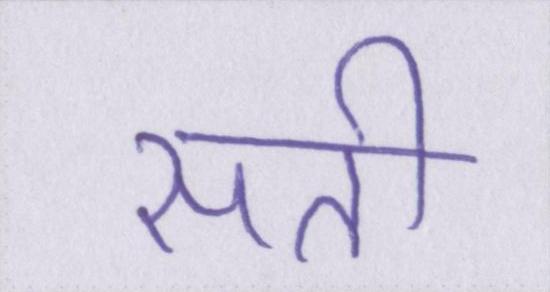 सती